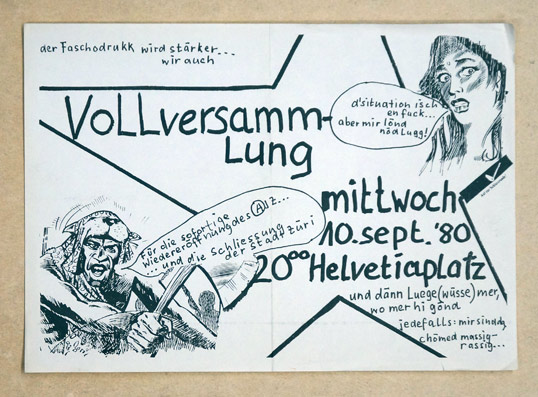 der Faschodrukk wird stärker...
wir auch
Vollversamm-
Lung
d'situation isch
en fuck...
aber mir lönd
nöd lugg!
mittwoch
10.sept.'80
20⁰⁰ Helvetiaplatz
für die sofortige
wiedereröffnung des AJZ...
... und die Schliessung
der Stadt züri
und dänn Luege(wüsse)mer,
wo mer hi gönd
jedefalls: mir sind da,
chömed massig-
rassig...